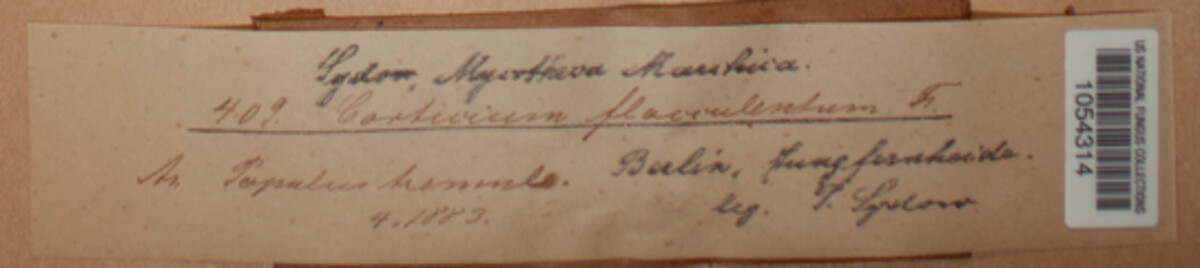 Sydow, Mycotheca Marchica.
409. Corticium flocculentum Fr.
An Populus tremula. Berlin, Jungfernheide.
4.1883. leg. P. Sydow
US NATIONAL FUNGUS COLLECTIONS
1054314